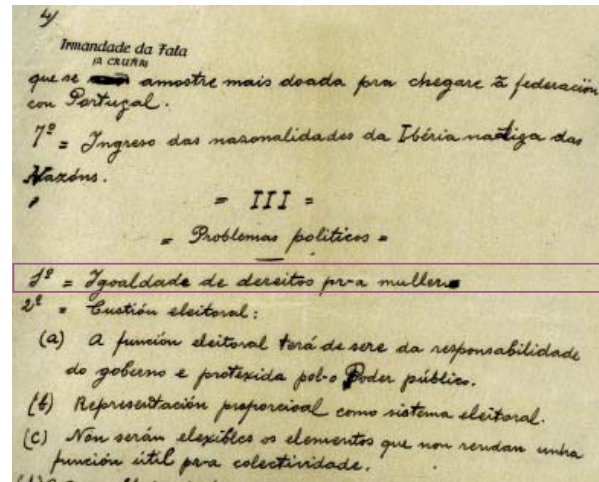 4/
Irmandade da Fala
(A CRUÑA)
que se amostre mais doada pra chegare â federación
con Portugal.
7º = Ingreso das nazonalidades da Ibéria na Liga das
Nazóns.
= III =
= Problemas políticos =
1º = Igoaldade de dereitos pr-a muller
2º = Custión eleitoral:
(a) A función eleitoral terá de sere da responsabilidade
do goberno e protexida pol-o Poder público.
(b) Representación proporcioal como sistema eleitoral.
(c) Non serán elexibles os elementos que non rendan unha
función útil pr-a colectividade.